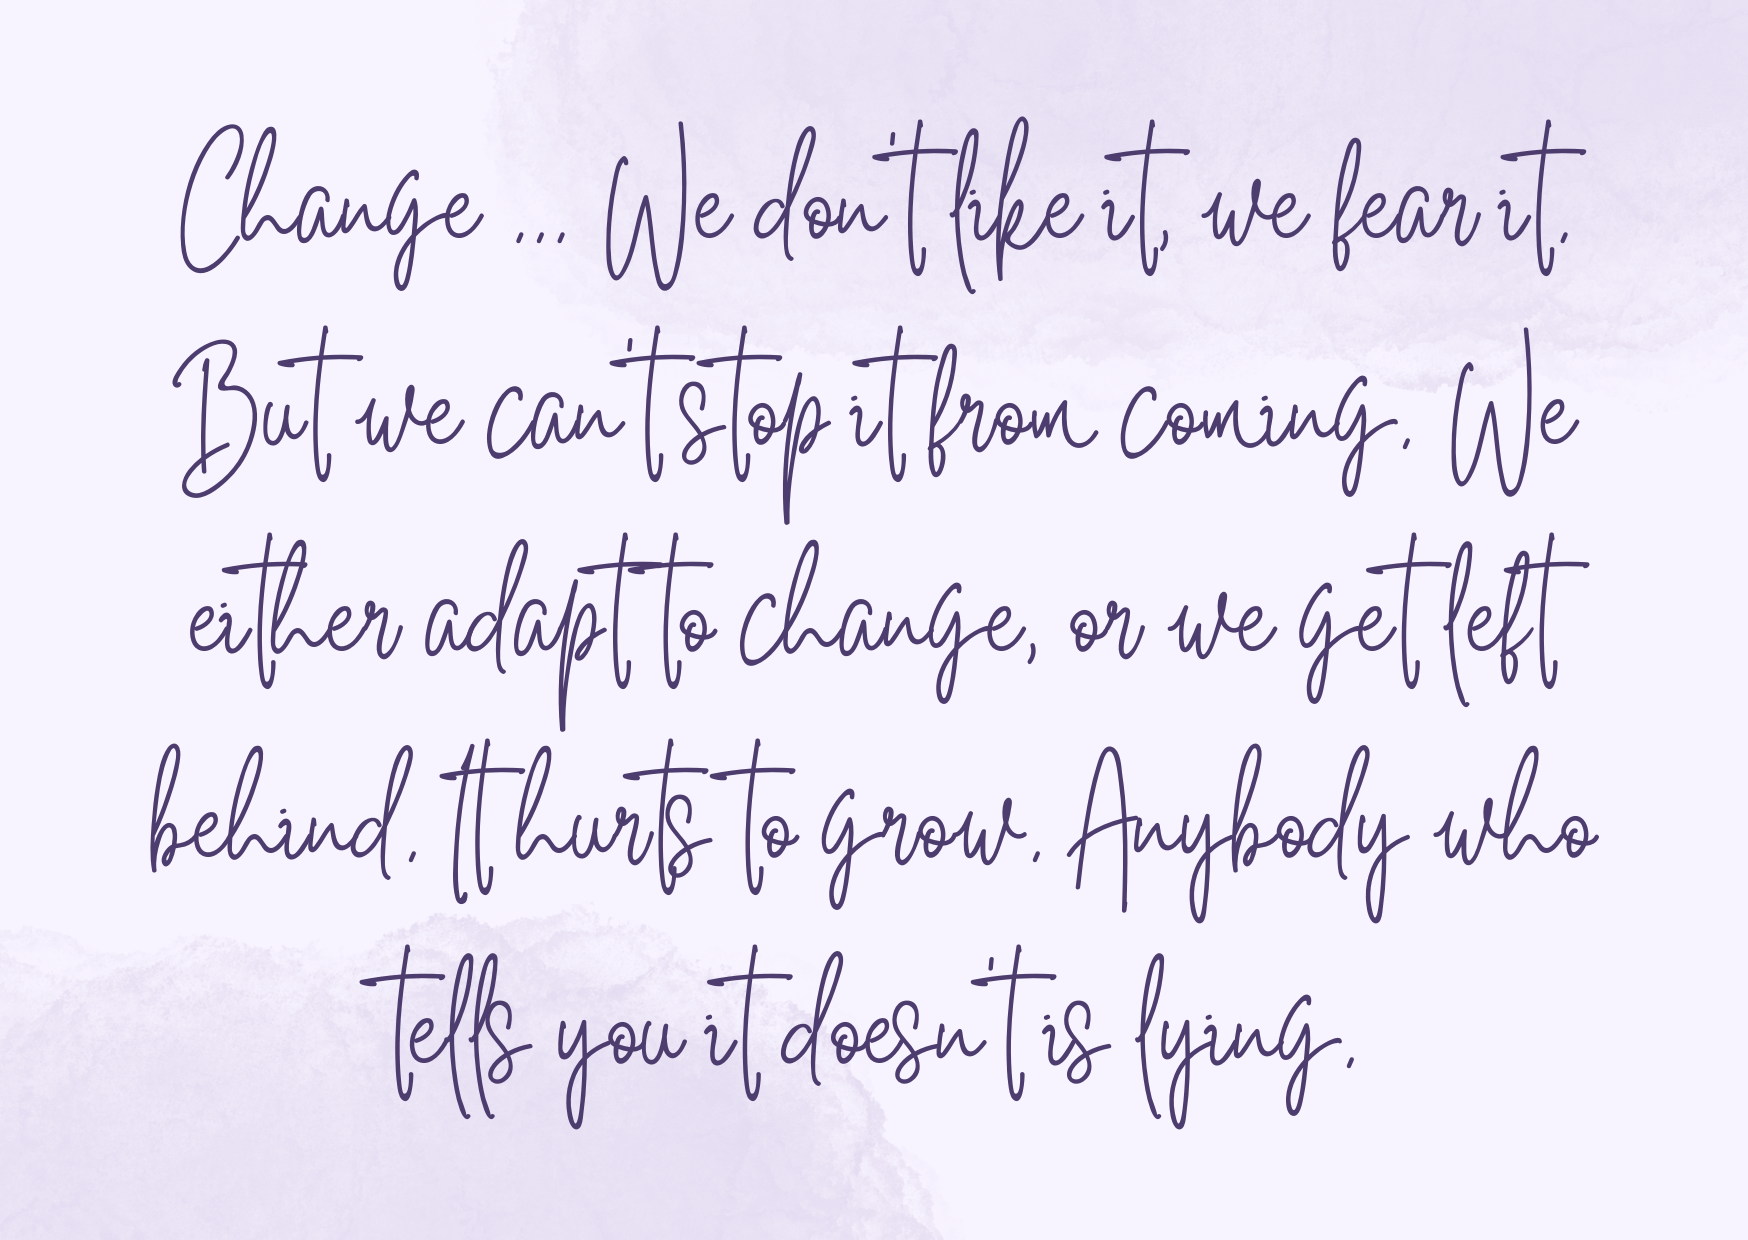 Change ... We don't like it, we fear it.
But we can't stop it from coming. We
either adapt to change, or we get left
behind. It hurts to grow. Anybody who
tells you it doesn't is lying.